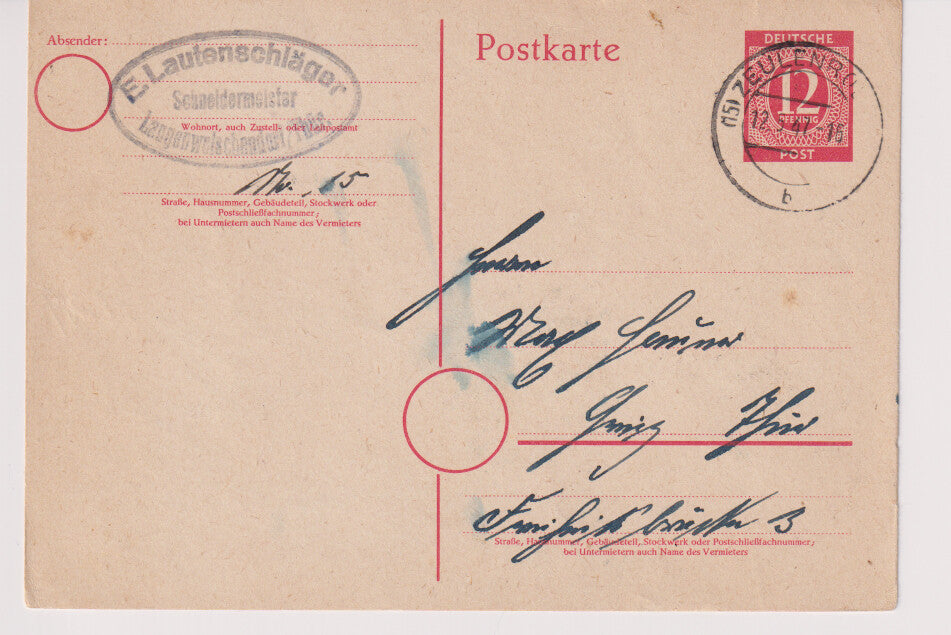 Absender:
E. Lautenschläger
Schneidermeister
Langenwolschendorf, Thür.
Wohnort, auch Zustell- oder Leitpostamt
No. 15
Straße, Hausnummer, Gebäudeteil, Stockwerk oder
Postschließfachnummer;
bei Untermietern auch Name des Vermieters
Postkarte
DEUTSCHE
12
PFENNIG
POST
(15) ZEULENRODA
b
Herrn
Max
Greiz Thür
Freiheitsbrücke 3
Straße, Hausnummer, Gebäudeteil, Stockwerk oder Postschließfachnummer;
bei Untermietern auch Name des Vermieters